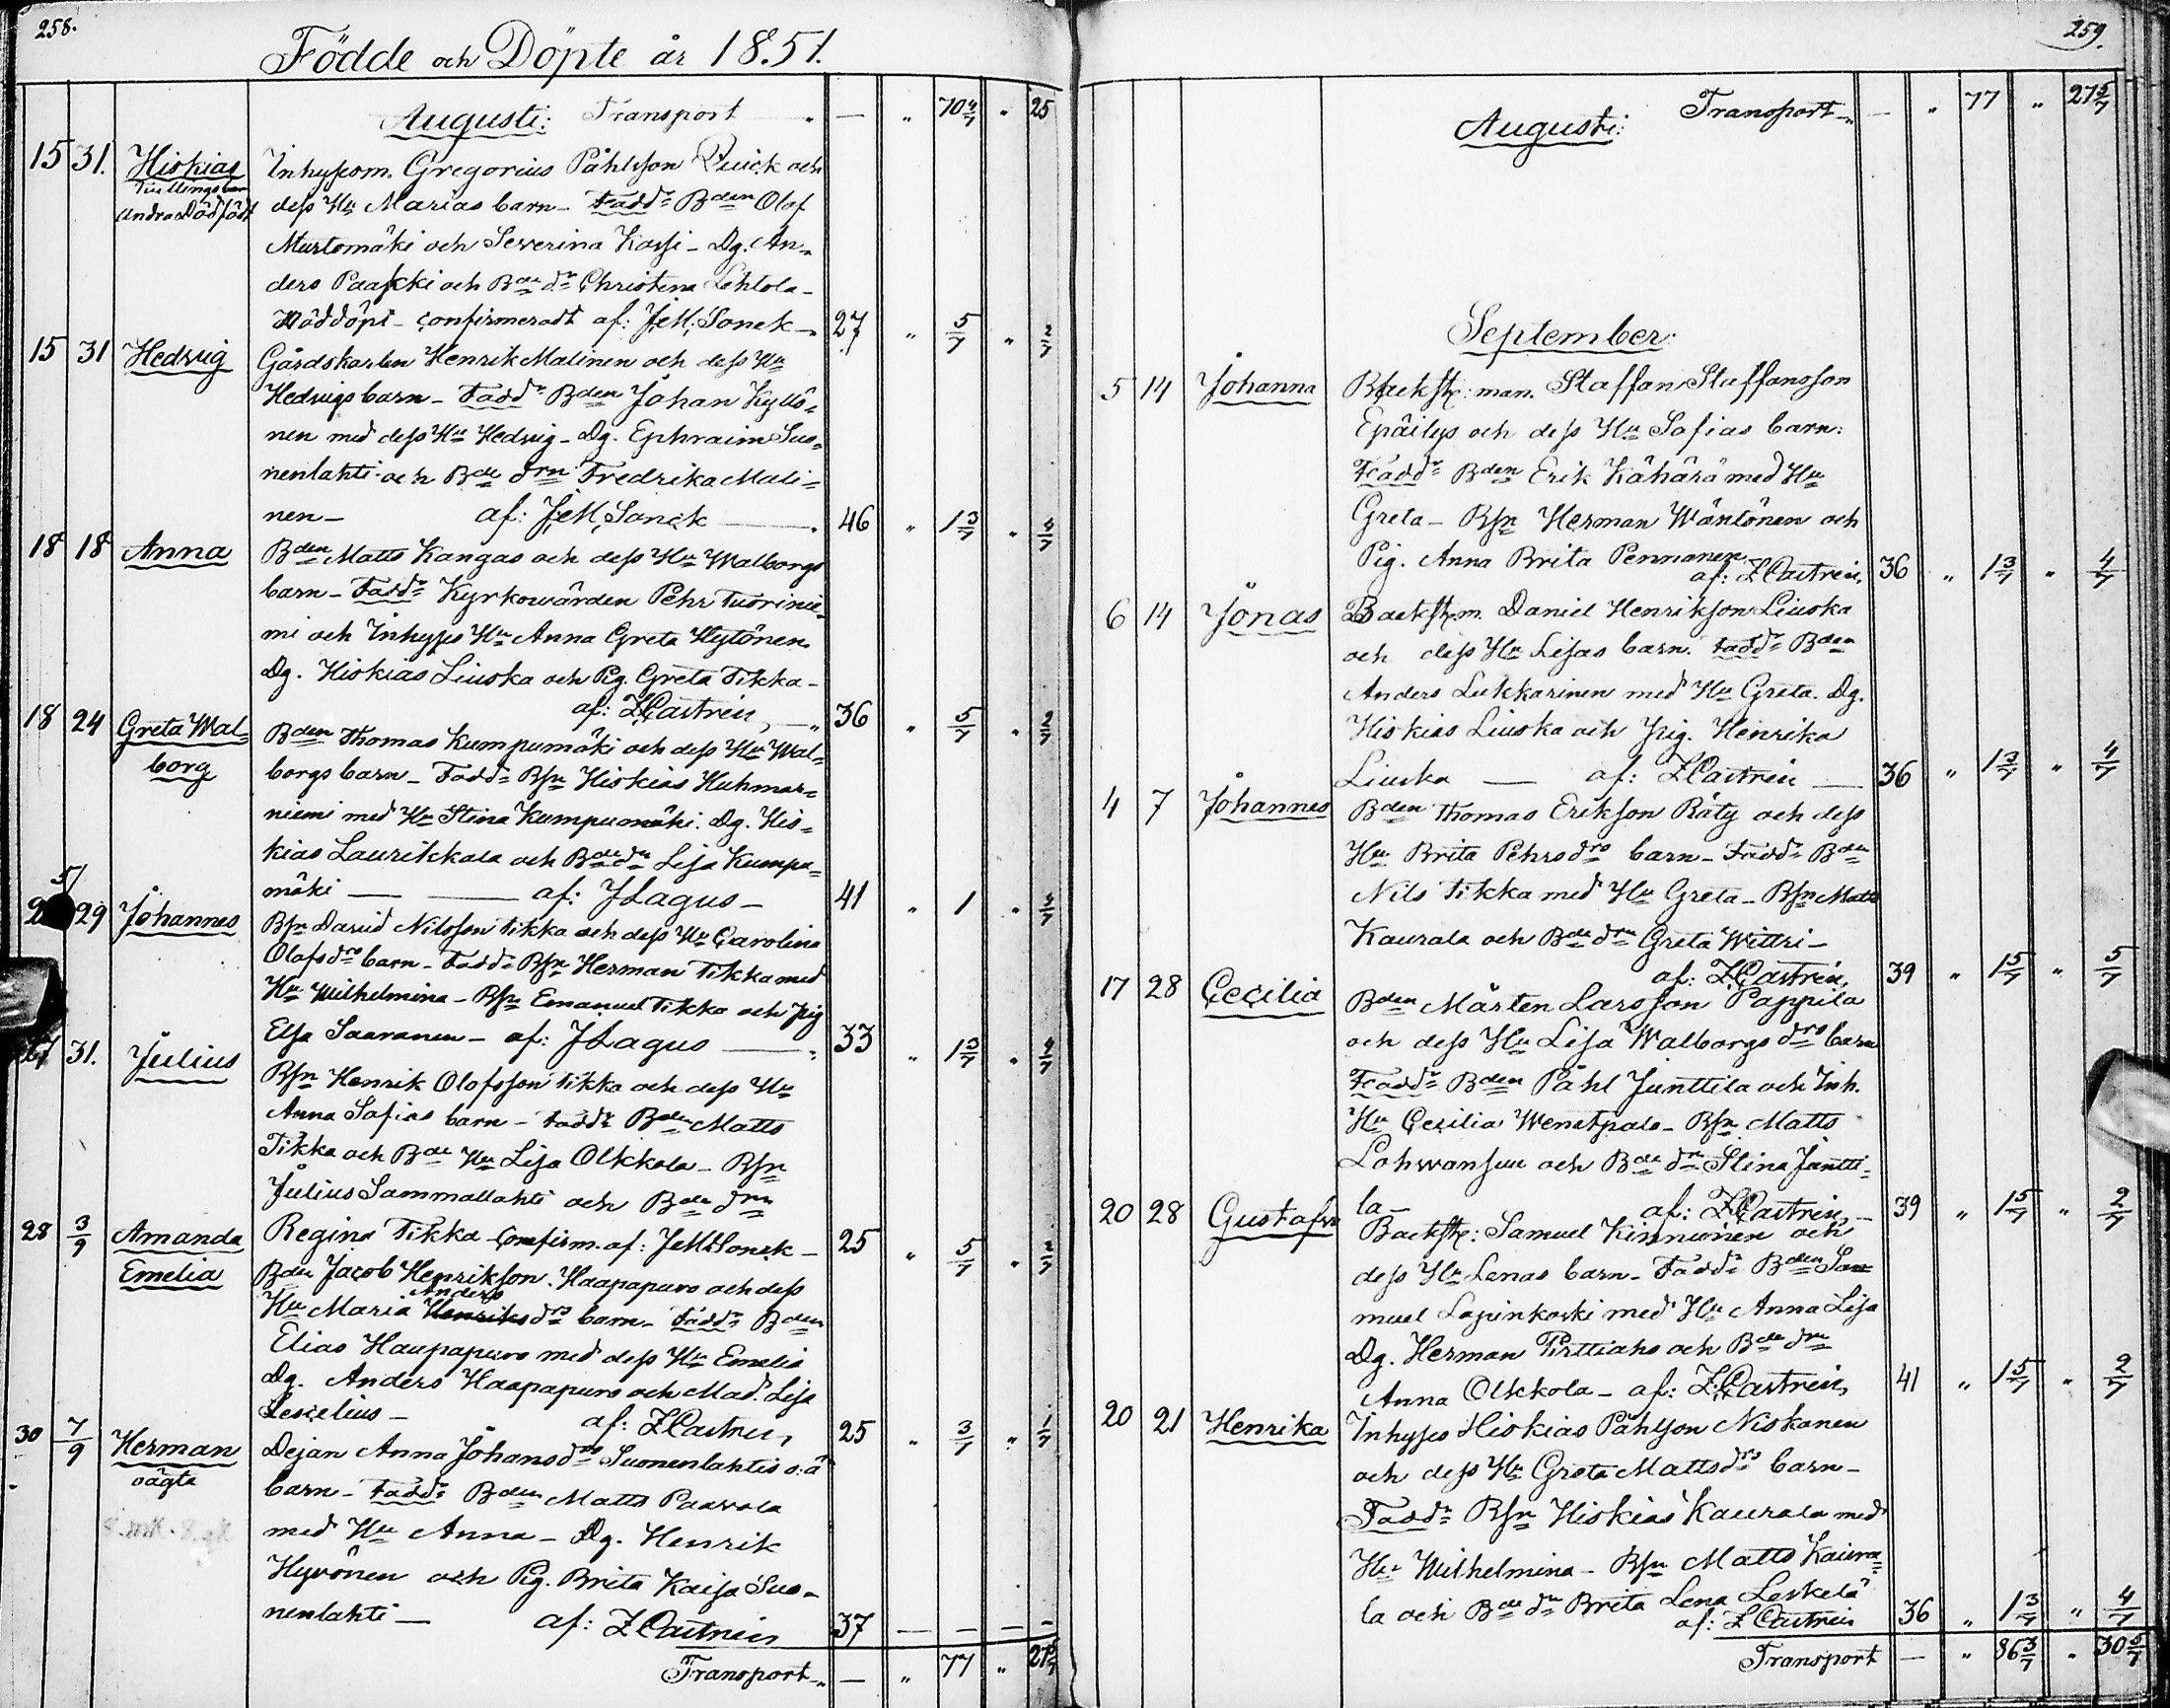 258.
Födde och Döpte år 1851.
Augusti: Transport — „ 70 4/7 „ 25
15 31. Hiskias Inhysesm. Gregorius Påhlsson Quick och
Tvillingsbarn
andra Dödfödt dess Hu Marias barn – Fadd: Bden Olof
Murtomäki och Severina Kossi – Dg. An-
ders Paakki och Bde dr Christina Lehtola –
Nöddöpt – confirmeradt af: J. M. Sonck – 27 „ 5/7 „ 2/7
15 31 Hedvig Gårdskarlen Henrik Malinen och dess Hu
Hedvigs barn – Fadd: Bden Johan Kyllö-
nen med dess Hu Hedvig – Dg. Ephraim Suo-
nenlahti och Bde drn Fredrika Mali-
nen – af: J. M. Sonck — 46 „ 1 3/7 „
18 18 Anna Bden Matts Kangas och dess Hu Walborgs
barn – Fadd: Kyrkowärden Pehr Tuorinie-
mi och Inhyses Hu Anna Greta Hytönen
Dg. Hiskias Liuska och Pig. Greta Tikka –
af: Z. Castrén — 36 „ 5/7 „ 2/7
18 24 Greta Wal-
borg
Bden Thomas Kumpumäki och dess Hu Wal-
borgs barn – Fadd: Bsn Hiskias Huhmar-
niemi med Hu Stina Kumpumäki. Dg. His-
kias Laurikkala och Bde dr Lisa Kumpu-
mäki — af: J Lagus – 41 „ 1 „
29 Johannes Bsn David Nilsson Tikka och dess Hu Carolina
Olofsdrs barn – Fadd: Bsn Herman Tikka med
Hu Wilhelmina – Bsn Emanuel Tikka och Pig
Elsa Saaranen – af: J Lagus — 33 „ 1 3/7 „
27 31. Julius Bsn Henrik Olofsson Tikka och dess Hu
Anna Sofias barn – Fadd: Bden Matts
Tikka och Bde Hu Lisa Olkkola – Bsn
Julius Sammallahti och Bde drn
Regina Tikka – Confirm. af: J M Sonck – 25 „ 5/7 „ 2/7
28 3/9 Amanda
Emelia
Bden Jacob Henriksson Haapapuro och dess
Anders
Hu Maria Henriksdrs barn – Fadd: Bden
Elias Haapapuro med dess Hu Emelia
Dg. Anders Haapapuro och Mad. Lisa
af: Z Castrén 25 „ 3/7 „ 1/7
30 7/9 Herman
oägta
Dejan Anna Johansdrs Suonenlahtis o: ä
barn – Fadd: Bden Matts Paavola
med Hu Anna – Dg. Henrik
Hyvönen och Pig. Brita Kaisa Suo-
nenlahti — af: Z Castrén 37 — — — —
Transport – — „ 77 „ 27 5/7
259.
Augusti: Transport – — „ 77 „ 27 5/7
September:
5 14 Johanna Backst: man. Staffan Staffansson
Epäilys och dess Hu Sofias barn:
Fadd: Bden Erik Kähärä med Hu
Greta – Bsn Herman Wäntönen och
Pig. Anna Brita Pennanen
af: Z Castrén, 36 „ 1 3/7 „ 4/7
6 14 Jonas Backst. m. Daniel Henriksson Liuska
och dess Hu Lisas barn. Fadd: Bden
Anders Lukkarinen med Hu Greta. Dg.
Hiskias Liuska och Pig. Henrika
Liuska — af: Z Castrén — 36 „ 1 3/7 „ 4/7
4 7 Johannes Bden Thomas Eriksson Räty och dess
Hu Brita Pehrsdrs barn – Fadd: Bden
Nils Tikka med Hu Greta – Bsn Matts
Kaurala och Bde drn Greta Wittri –
af: Z Castrén, 39 „ 1 5/7 „ 5/7
17 28 Cecilia Bden Mårten Larsson Pappila
och dess Hu Lisa Walborgs drs barn
Fadd: Bden Påhl Junttila och Inh.
Hu Cecilia Wenetpalo – Bsn Matts
Lohwansuu och Bde dr Stina Juntti-
la – af: Z Castrén – 39 „ 1 5/7 „ 2/7
20 28 Gustafva Backst: Samuel Kinnunen och
dess Hu Lenas barn – Fadd: Bden Sa-
muel Lapinkoski med Hu Anna Lisa
Dg. Herman Pirttiaho och Bde drn
Anna Olkkola – af: Z Castrén, 41 „ 1 5/7 „ 2/7
20 21 Henrika Inhyses Hiskias Påhlsson Niskanen
och dess Hu Greta Mattsdrs barn –
Fadd: Bsn Hiskias Kaurala med
Hu Wilhelmina – Bsn Matts Kaura-
la och Bde dr Brita Lena Leskelä
af: Z Castrén 36 „ 1 3/7 „ 4/7
Transport — „ 86 3/7 „ 30 5/7